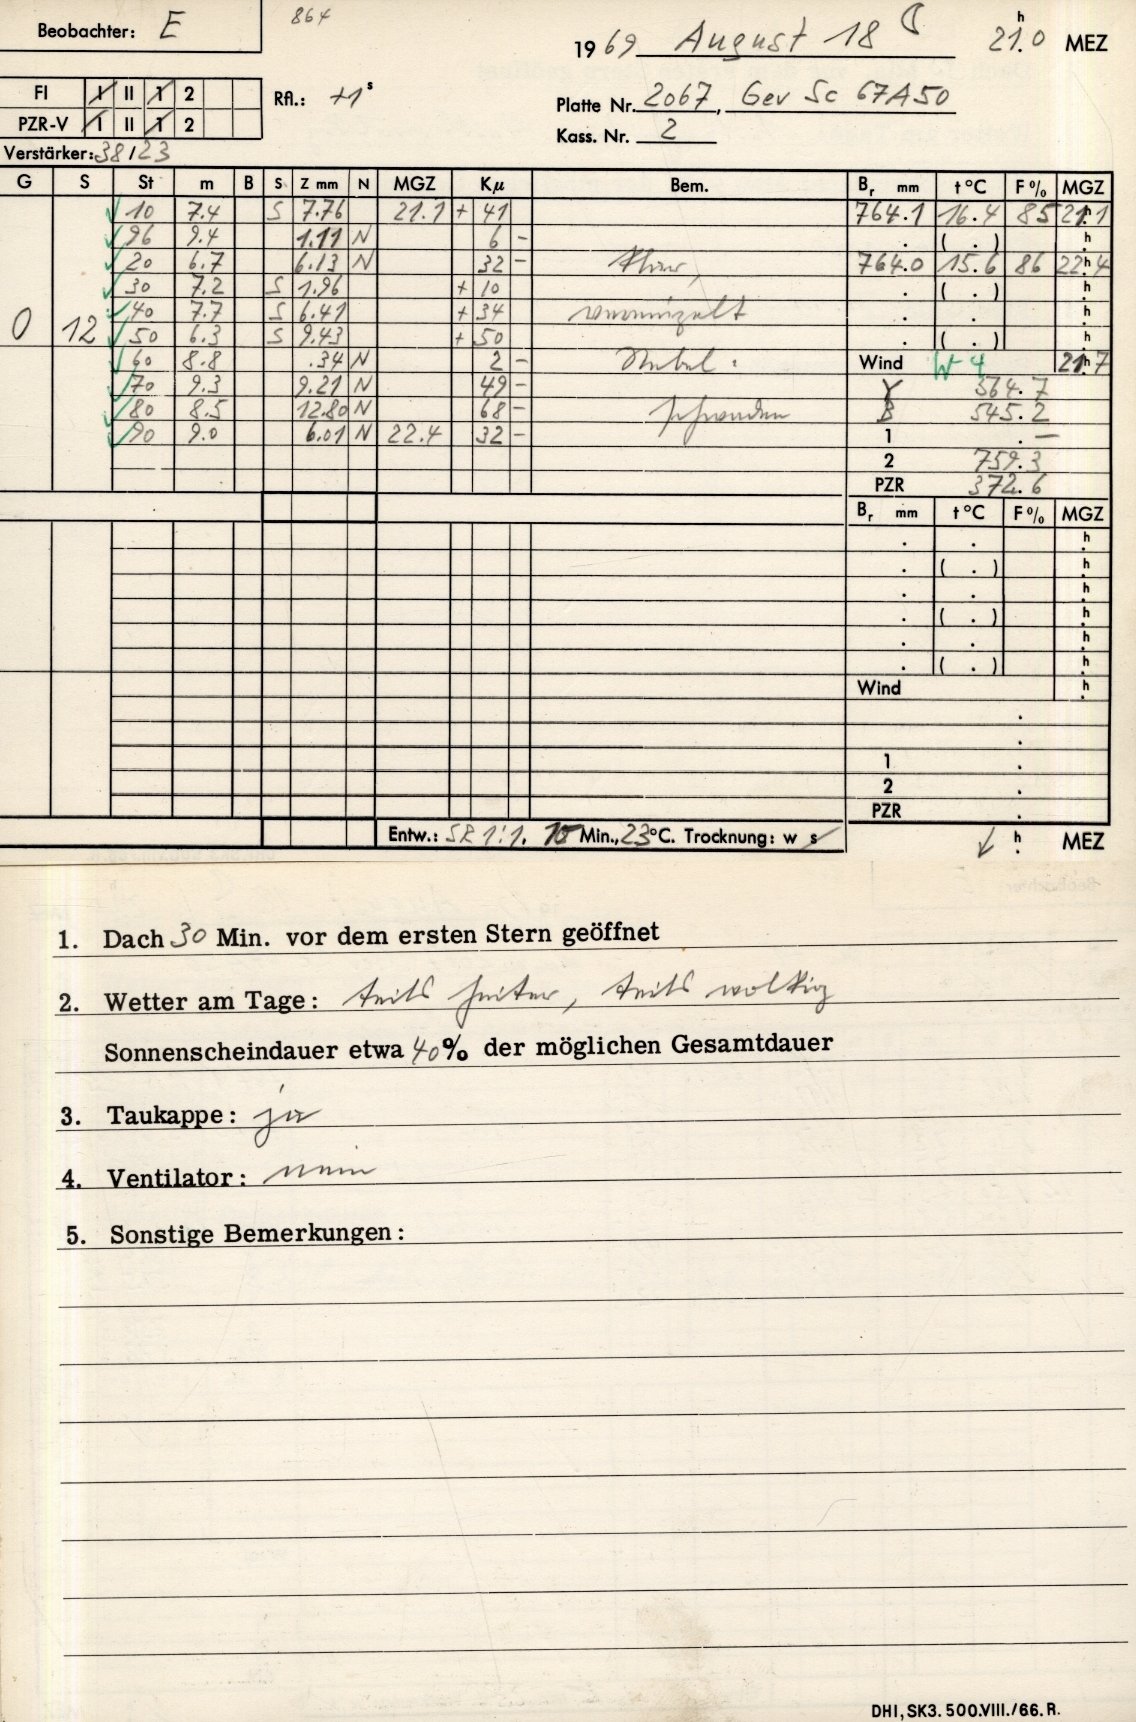 Beobachter: E
864
1969 August 18 21.0 h MEZ
FI I II 1 2
Rfl.: +1 s
Platte Nr. 2067, Gev Sc 67A50
PZR-V I II 1 2
Kass. Nr. 2
Verstärker: 38/23
G S St m B S Z mm N MGZ Kμ Bem. Br mm t°C F% MGZ
10 7.4 S 7.76 21.1 + 41 764.1 16.4 85 21.1 h
96 9.4 1.11 N 6 - . ( . ) h
20 6.7 6.13 N 32 - Klar, 764.0 15.6 86 22.4 h
30 7.2 S 1.96 + 10 . ( . ) h
40 7.7 S 6.41 + 34 vereinzelt . . h
0 12 50 6.3 S 9.43 + 50 . ( . ) h
60 8.8 .34 N 2 - Nebel- Wind W 4 21.7 h
70 9.3 9.21 N 49 - Y 564.7
80 8.5 12.80 N 68 - schwaden B 545.2
90 9.0 6.01 N 22.4 32 - 1 . —
2 759.3
PZR 372.6
Br mm t°C F% MGZ
. . h
. ( . ) h
. . h
. ( . ) h
. . h
. ( . ) h
Wind h
.
.
1 .
2 .
PZR .
Entw.: SR 1:1. 10 Min., 23°C. Trocknung: w s h MEZ
1. Dach 30 Min. vor dem ersten Stern geöffnet
2. Wetter am Tage: teils heiter, teils wolkig
Sonnenscheindauer etwa 40% der möglichen Gesamtdauer
3. Taukappe: ja
4. Ventilator: nein
5. Sonstige Bemerkungen:
DHI, SK3. 500.VIII./66. R.